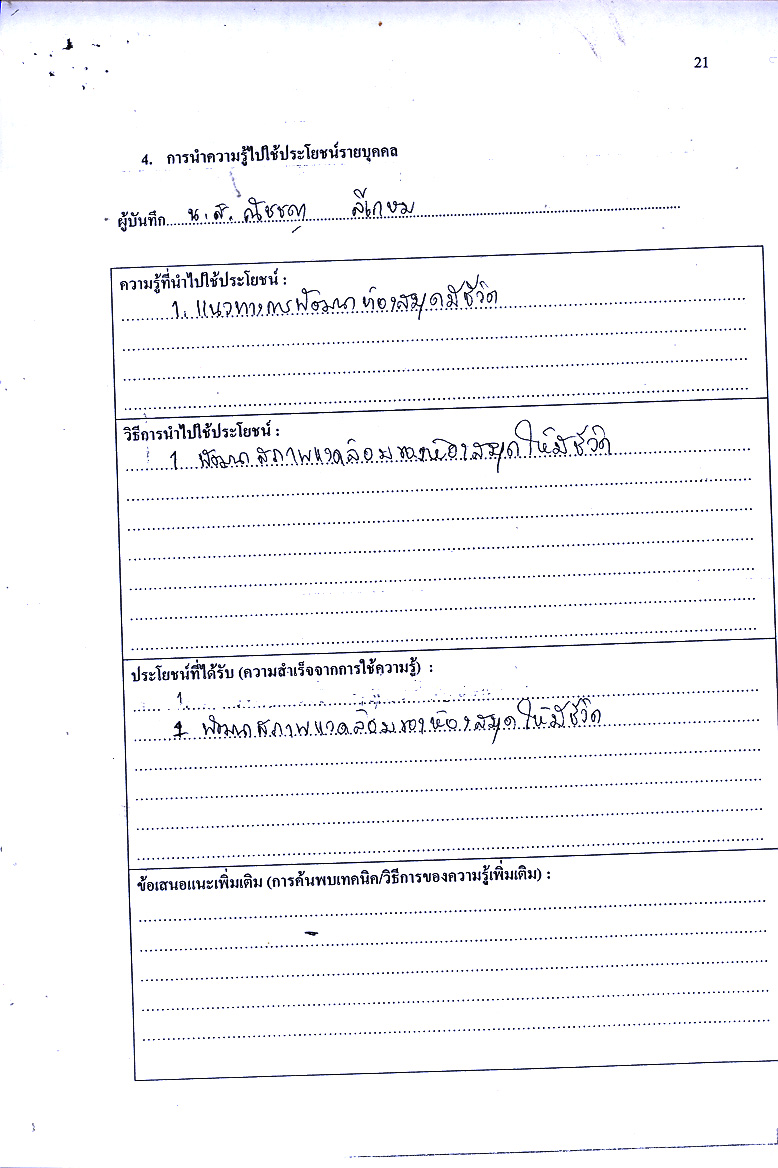 21
4. การนำความรู้ไปใช้ประโยชน์รายบุคคล
ผู้บันทึก น.ส. ณัชชญา ลีเกษม
ความรู้ที่นำไปใช้ประโยชน์ :
1. แนวทางการพัฒนาห้องสมุดมีชีวิต
วิธีการนำไปใช้ประโยชน์ :
1 พัฒนาสภาพแวดล้อมของห้องสมุดให้มีชีวิต
ประโยชน์ที่ได้รับ (ความสำเร็จจากการใช้ความรู้) :
1.
1 พัฒนาสภาพแวดล้อมของห้องสมุดให้มีชีวิต
ข้อเสนอแนะเพิ่มเติม (การค้นพบเทคนิค/วิธีการของความรู้เพิ่มเติม) :
-